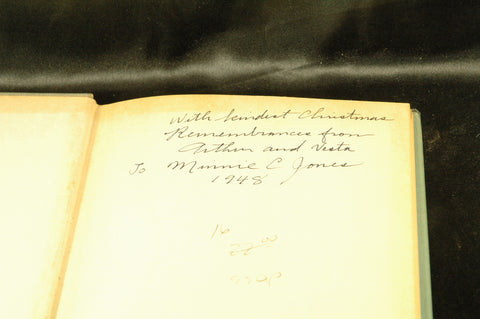 With kindest Christmas
Remembrances from
Arthur and Vesta
To Minnie C. Jones
1948
16